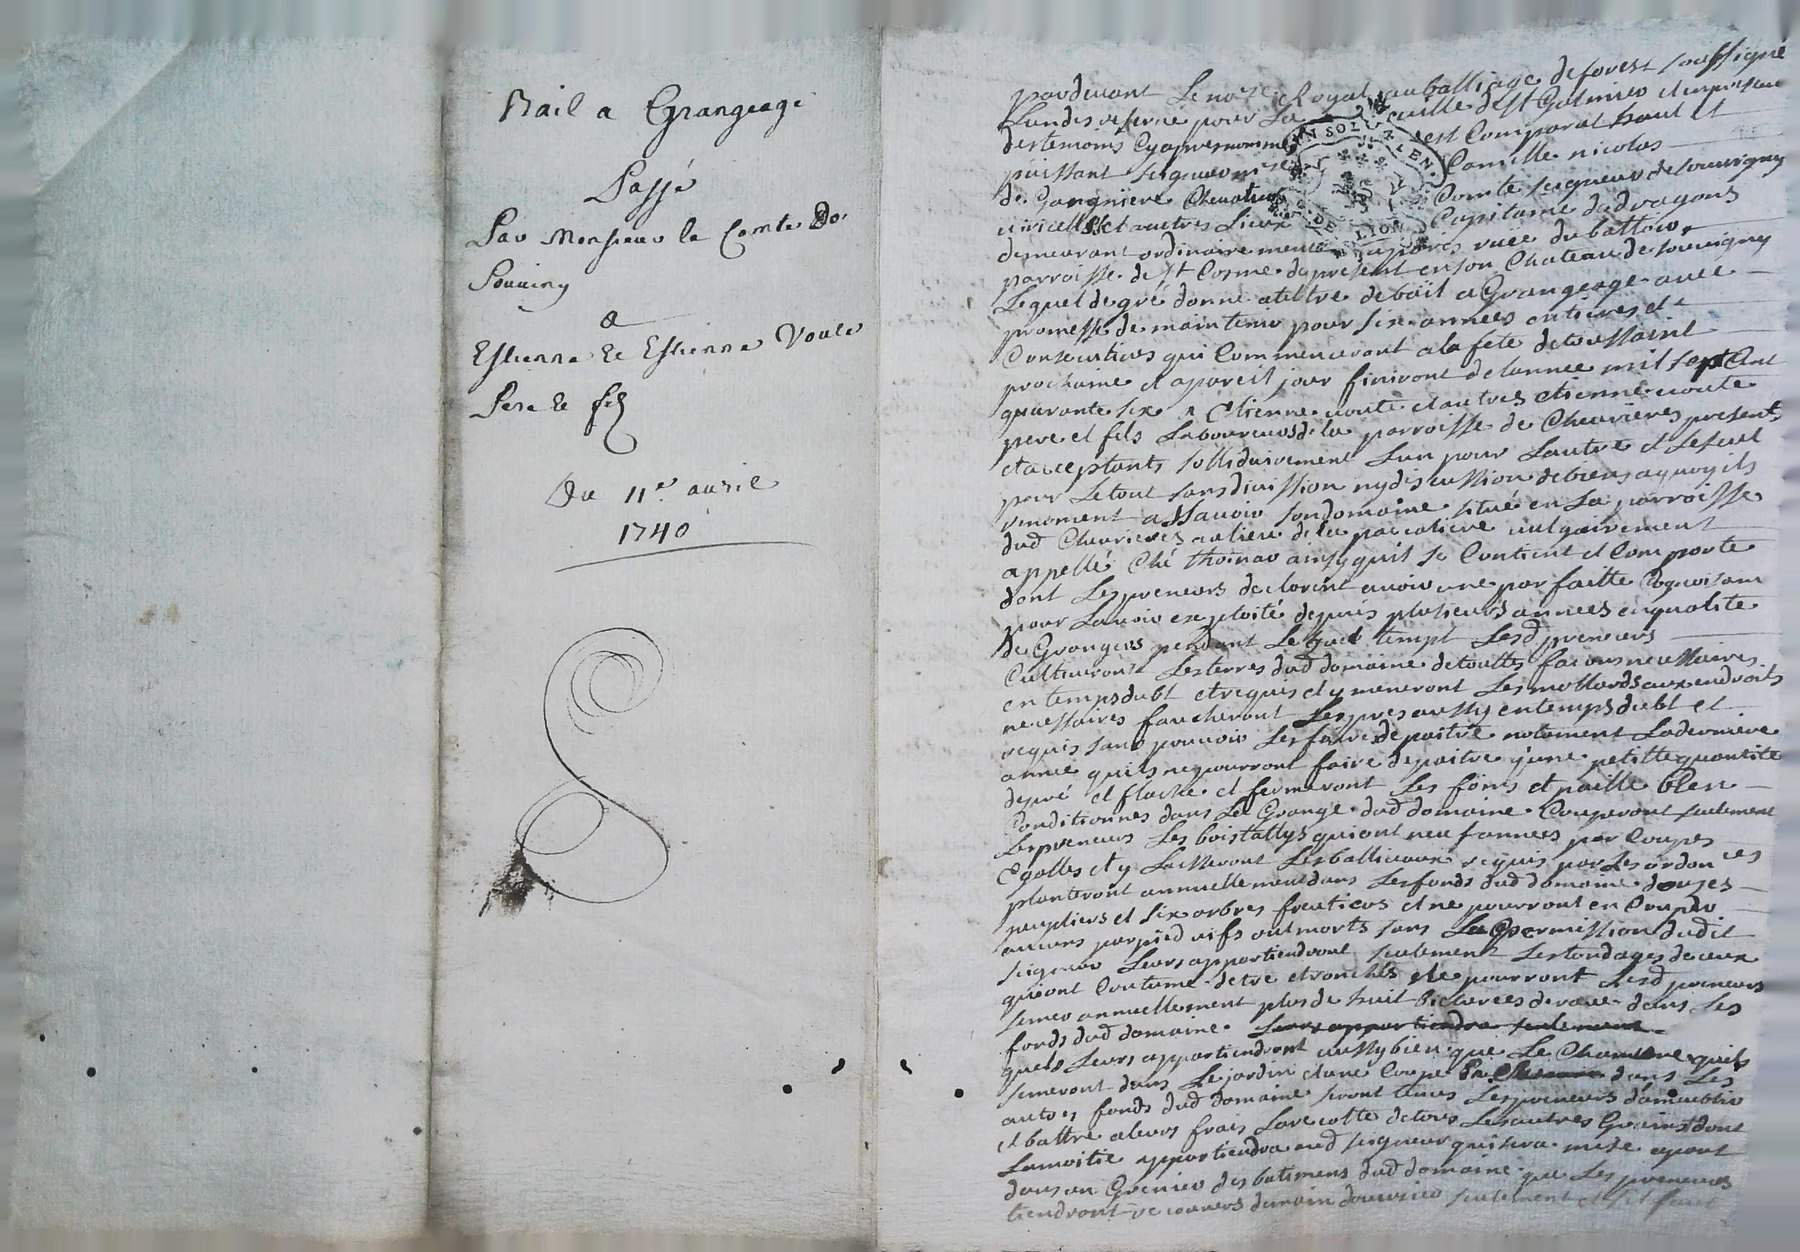 Bail a Grangeage
Passé
Par Monsieur le Comte De
Souviny
a
Estienne & Estienne Voute
Pere & fils
Du 11e avril
1740
pardevant Le nore Royal au balliage de forest soussigné
Lundis reservé pour La ville de St Galmier et en presence
des temoins Cyapres nommés est Comparut haut et
puissant seigneur mre Camille nicolas
de Gangniere Chevalier Comte seigneur de souvigny
viricelles et autres Lieux Capitaine de dragons
demeurant ordinairement a paris ruëe du battoir
parroisse de St Cosme de present en son Chateau de souvigny
Lequel de gré donne a tiltre de bail a Grangeage avec
promesse de maintenir pour six années entieres et
Consecutives qui Commenceront a la fete de toussaint
prochaine et a pareil jour finiront de lannée mil sept Cent
quarante six a Etienne voute et autres etienne voute
pere et fils Laboureurs de la parroisse de Chevrieres presents
et acceptants sollidairement Lun pour Lautre et Le seul
pour Le tout sans division ny discussion de biens a quoy ils
renoncent a Scavoir son domaine situé en La parroisse
dud Chevrieres au lieu de la vulgairement
appellé Ché thoinar ainsy quil se Contient et Comporte
dont Les preneurs declarent avoir une parfaitte Cognoisance
pour Lavoir exploité depuis plusieurs années en qualite
de Grangers pendant Lequel tempt Lesd preneurs
Cultiveront Les terres dud domaine de touttes facons necessaires
en temps dubt et requis et y meneront Les mottards aux endroits
necessaires faucheront Les prés aussy en temps dubt et
requis sans pouvoir Les faire depaitre notament La derniere
année quils ne pourront faire depaitre qu'une petitte quantité
de pré et fermeront Les foins et paille bien
Conditionnes dans La Grange dud domaine Couperont seulement
Les preneurs Les bois tallys qui ont neuf années par Coupes
Egalles et y Laisseront Les balliveaux requis par Les ordonces
planteront annuellement dans Les fonds dud domaine douzes
peupliers et six arbres fruitiers et ne pourront en Couper
aucuns par pied vifs ou morts sans La permission dudit
seigneur Leurs appartiendront seulement Les tondages de ceux
qui ont Coutume detre etronchés ne pourront Lesd preneurs
semer annuellement plus de huit bicherees de rave dans Les
fonds dud domaine Leurs appartiendra seulement
quels Leurs appartiendront aussy bien que Le Chanvre quils
semeront dans Le jardin et une Coupe dans Les
autres fonds dud domaine seront tenus Les preneurs
et battre a leurs frais La recolte de tous Les autres Grains dont
La moitié appartiendra aud seigneur qui sera mise apart
dans un Grenier des batimens dud domaine que Les preneurs
tiendront recouvers de main douvrier seulement
MUSOL
LEN
DE LION